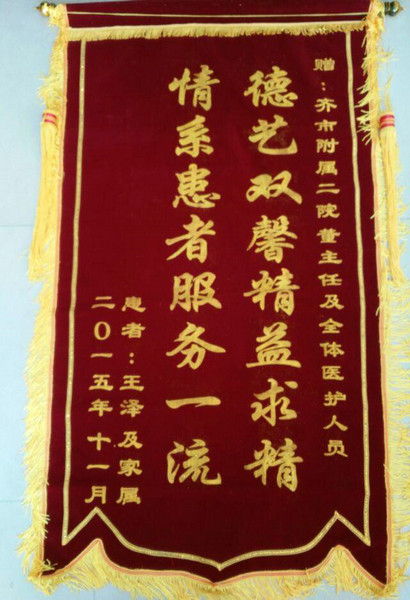 赠：齐市附属二院董主任及全体医护人员
德艺双馨精益求精
情系患者服务一流
患者：王泽及家属
二〇一五年十一月